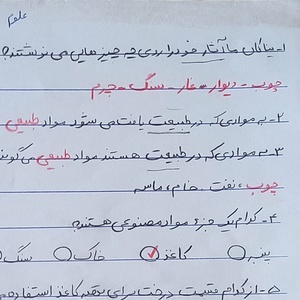 علوم
۱- نیاکان ما آثار خود را روی چه چیزهایی می نوشتند؟
چوب - دیوار - غار - سنگ - چرم
۲- به موادی که در طبیعت یافت می شود مواد طبیعی
۳- به موادی که در طبیعت هستند مواد طبیعی می گویند
چوب، نفت، خاک، ماسه
۴- کدام یک جزء مواد مصنوعی هستند؟
پنبه کاغذ خاک سنگ
۵- از کدام قسمت درخت برای تهیه کاغذ استفاده